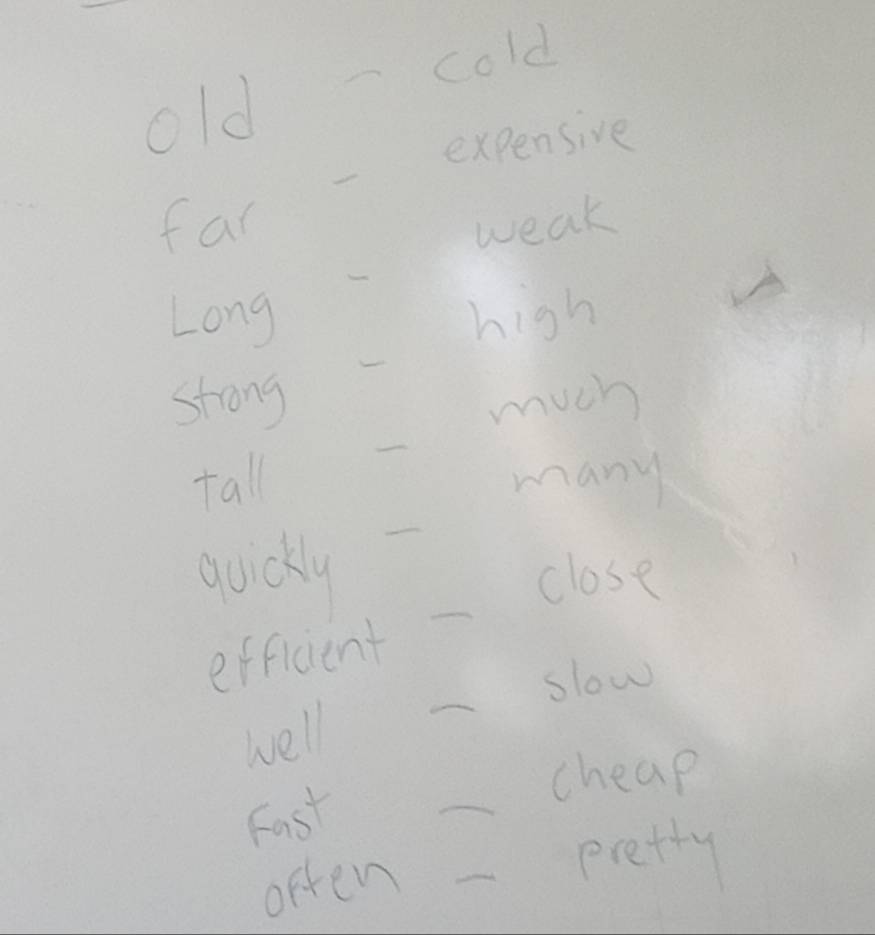 old - cold
far - expensive
Long - weak
strong - high
tall - much
quickly - many
efficient - close
well - slow
Fast - cheap
often - pretty